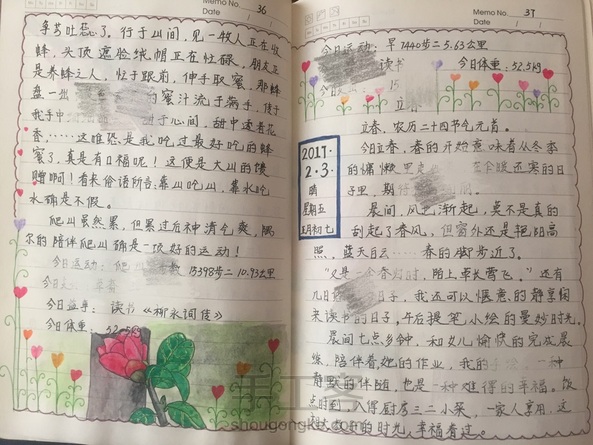 Memo No. 36
Date / /
争芳吐蕊了，行于山间，见一牧人正在收
蜂，头顶遮脸绒帽正在忙碌，朋友正
是养蜂之人，忙于跟前，伸手取蜜，那蜂
盘一出 的蜜汁流于满手，食于
我手中 于心间，甜中透着花
香……这唯恐是我吃过最好吃的蜂
蜜了，真是有口福呢！这便是大山的馈
赠啊！看来俗语所言靠山吃山，靠水吃
水确是不假。
爬山虽然累，但累过后神清气爽，偶
尔的陪伴爬山确是一项好的运动！
今日运动：爬山 15398步=10.93公里
今日
今日益事：读书《柳永词传》
今日体重：52.5kg
Memo No. 37
Date / /
今日运动：早7440步=5.63公里
读书 今日体重：52.5kg
今日 15
立春
立春，农历二十四节气元首。
2017
2·3
晴
星期五
正月初七
今日立春，春的开始意味着从冬季
的慵懒里 还寒的日
子里，期待
晨间，风已渐起，莫不是真的
刮起了春风，但窗外还是艳阳高
照，蓝天白云……春的脚步近了。
“又是一个春好时，陌上草长莺飞。”还有
几日 日子，我还可以惬意的静享闲
来读书的日子，午后提笔小绘的曼妙时光。
晨间七点多钟，和女儿愉快的完成晨
练，陪伴着她的作业，我的手绘，一种
静默的伴随，也是一种难得的幸福。饭
点时到，入得厨房三二小菜，一家人享用，这
的时光，幸福着过。
手工客
shougongke.com